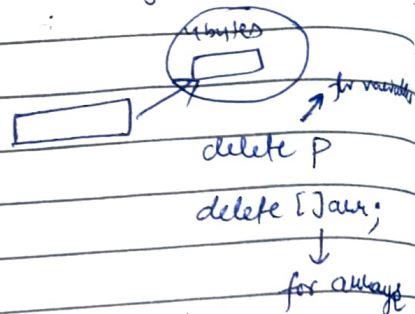 4 bytes
for variables
delete p
delete []arr;
for arrays